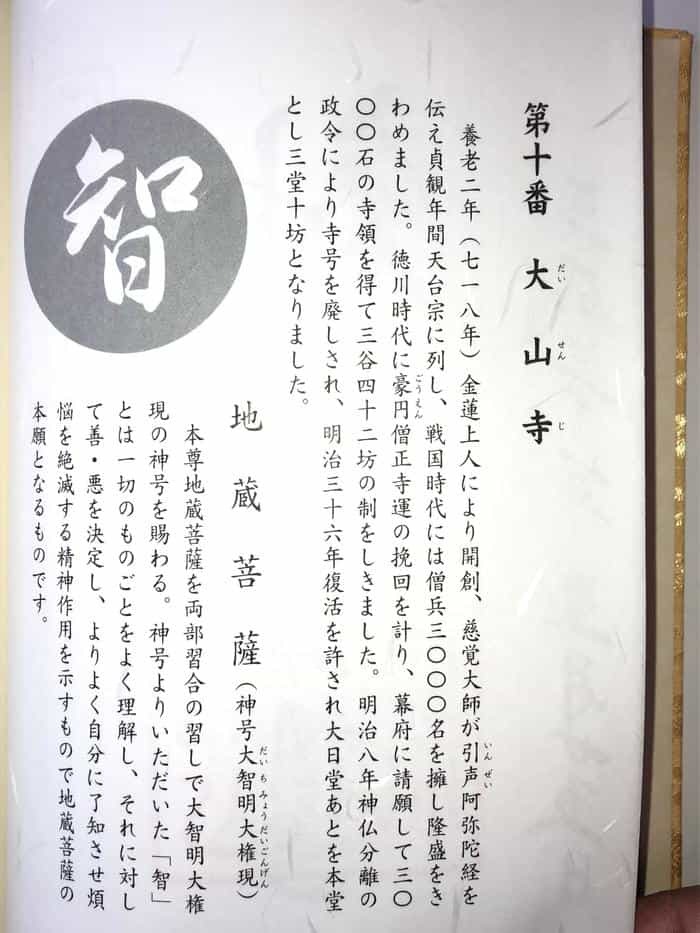 第十番　大山寺
だいせんじ
養老二年（七一八年）金蓮上人により開創、慈覚大師が引声阿弥陀経を
いんぜい
伝え貞観年間天台宗に列し、戦国時代には僧兵三〇〇〇名を擁し隆盛をき
わめました。徳川時代に豪円僧正寺運の挽回を計り、幕府に請願して三〇
ごうえん
〇〇石の寺領を得て三谷四十二坊の制をしきました。明治八年神仏分離の
政令により寺号を廃しされ、明治三十六年復活を許され大日堂あとを本堂
とし三堂十坊となりました。
地蔵菩薩（神号大智明大権現）
だいちみょうだいごんげん
本尊地蔵菩薩を両部習合の習しで大智明大権
現の神号を賜わる。神号よりいただいた「智」
とは一切のものごとをよく理解し、それに対し
て善・悪を決定し、よりよく自分に了知させ煩
悩を絶滅する精神作用を示すもので地蔵菩薩の
本願となるものです。
智